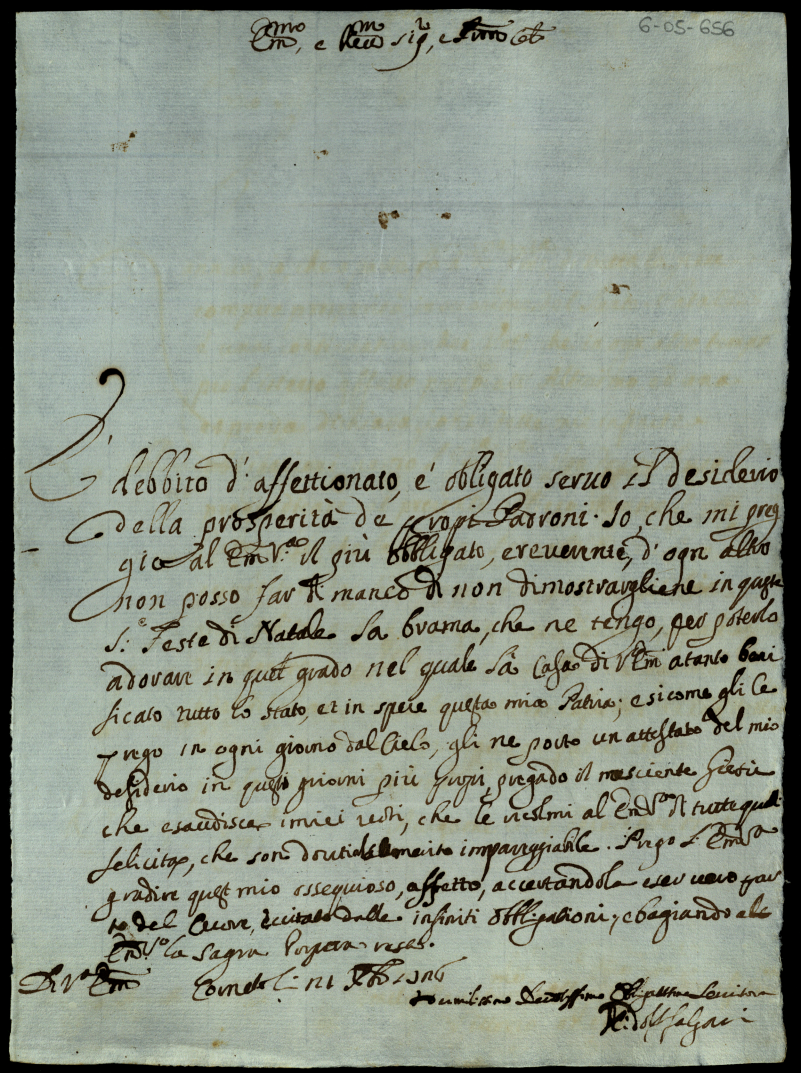 6-05-656
Em̃mo, e Rev̄m Sigr, e
È
debbito d'affettionato, e' obligato servo il desiderio
della prosperità de proprÿ Padroni. Io, che mi preg
gio al Em̃ V.a il più obbligato, e reverente, d'ogn altro
non posso far di manco di non dimostrargliene in queste
S.e Feste di Natale la brama, che ne tengo, per poterlo
adorare in quel grado nel quale la Casa di V. Em̃ a tanto beni
ficato tutto lo stato, et in specie questa mia Patria; e sicome gli Ce
prego in ogni giorno dal Cielo, gli ne porto un attestato del mio
desiderio in questi giorni più proprÿ, pregado il nasciente Giesù
che esaudisca i miei voti, che le ricolmi al Em̃ V.a di tutte quelle
felicità, che son dovute al merito impareggiabile. Prego V. Em̃
gradire quest mio ossequioso, affetto, accertandola esser vero par
to del Cuore, eccitato dalle infiniti obbligationi, e bagiando al
Em̃ V.a la sagra Porpora resto.
Di V.a Em̃ Corneto li 21 Xbre
Humilissimo Devotissimo Obligatissimo Servitore